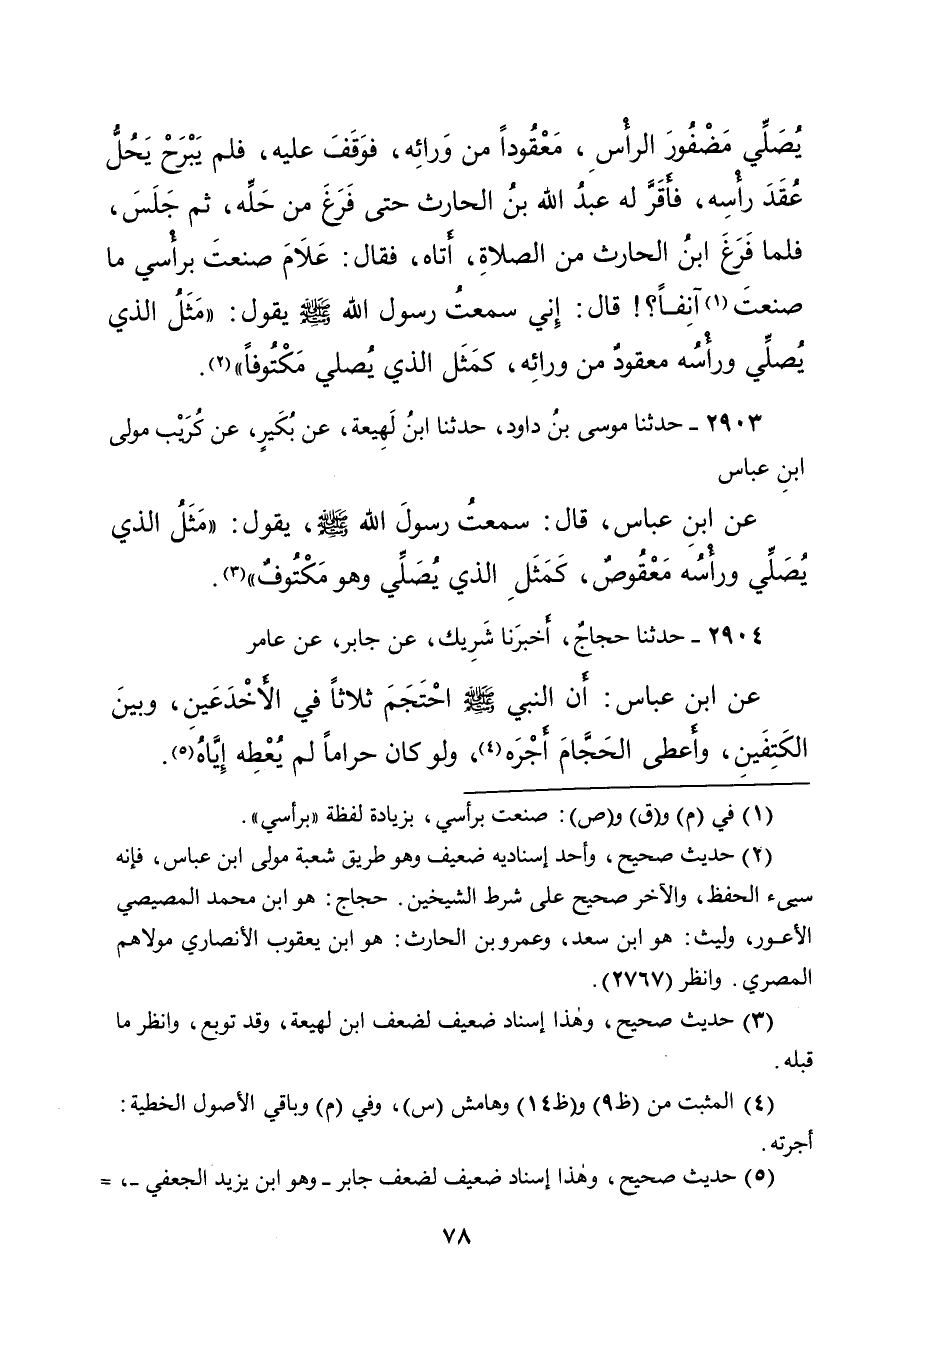 يُصَلِّي مَضْفُورَ الرأْسِ، مَعْقُوداً من وَرائِه، فوَقَفَ عليه، فلم يَبْرَحْ يَحُلُّ
عُقَدَ رأْسِه، فأَقَرَّ له عبدُ الله بنُ الحارث حتى فَرَغَ من حَلِّه، ثم جَلَسَ،
فلما فَرَغَ ابنُ الحارث من الصلاةِ، أَتاه، فقال: عَلَامَ صنعتَ برأْسي ما
صنعتَ(١) آنِفاً؟! قال: إِني سمعتُ رسول الله ﷺ يقول: «مَثَلُ الذي
يُصلِّي ورأْسُه معقودٌ من ورائِه، كمَثَل الذي يُصلي مَكْتُوفاً»(٢).
٢٩٠٣ ـ حدثنا موسى بنُ داود، حدثنا ابنُ لَهِيعة، عن بُكَيرٍ، عن كُرَيْب مولى
ابنِ عباس
عن ابنِ عباس، قال: سمعتُ رسولَ الله ﷺ، يقول: «مَثَلُ الذي
يُصَلِّي ورأْسُه مَعْقُوصٌ، كَمَثَلِ الذي يُصَلِّي وهو مَكْتُوفٌ»(٣).
٢٩٠٤ ـ حدثنا حجاجٌ، أَخبرَنا شَرِيك، عن جابر، عن عامر
عن ابن عباس: أَن النبي ﷺ احْتَجَمَ ثلاثاً في الأَخْدَعَينِ، وبينَ
الكَتِفَينِ، وأَعطى الحَجَّامَ أَجْرَه(٤)، ولو كان حراماً لم يُعْطِه إِيَّاهُ(٥).
(١) في (م) و(ق) و(ص): صنعت برأسي، بزيادة لفظة «برأسي».
(٢) حديث صحيح، وأحد إسناديه ضعيف وهو طريق شعبة مولى ابن عباس، فإنه
سيىء الحفظ، والآخر صحيح على شرط الشيخين. حجاج: هو ابن محمد المصيصي
الأعور، وليث: هو ابن سعد، وعمرو بن الحارث: هو ابن يعقوب الأنصاري مولاهم
المصري. وانظر (٢٧٦٧).
(٣) حديث صحيح، وهٰذا إسناد ضعيف لضعف ابن لهيعة، وقد توبع، وانظر ما
قبله.
(٤) المثبت من (ظ٩) و(ظ١٤) وهامش (س)، وفي (م) وباقي الأصول الخطية:
أجرته.
(٥) حديث صحيح، وهٰذا إسناد ضعيف لضعف جابر ـ وهو ابن يزيد الجعفي ـ، =
٧٨